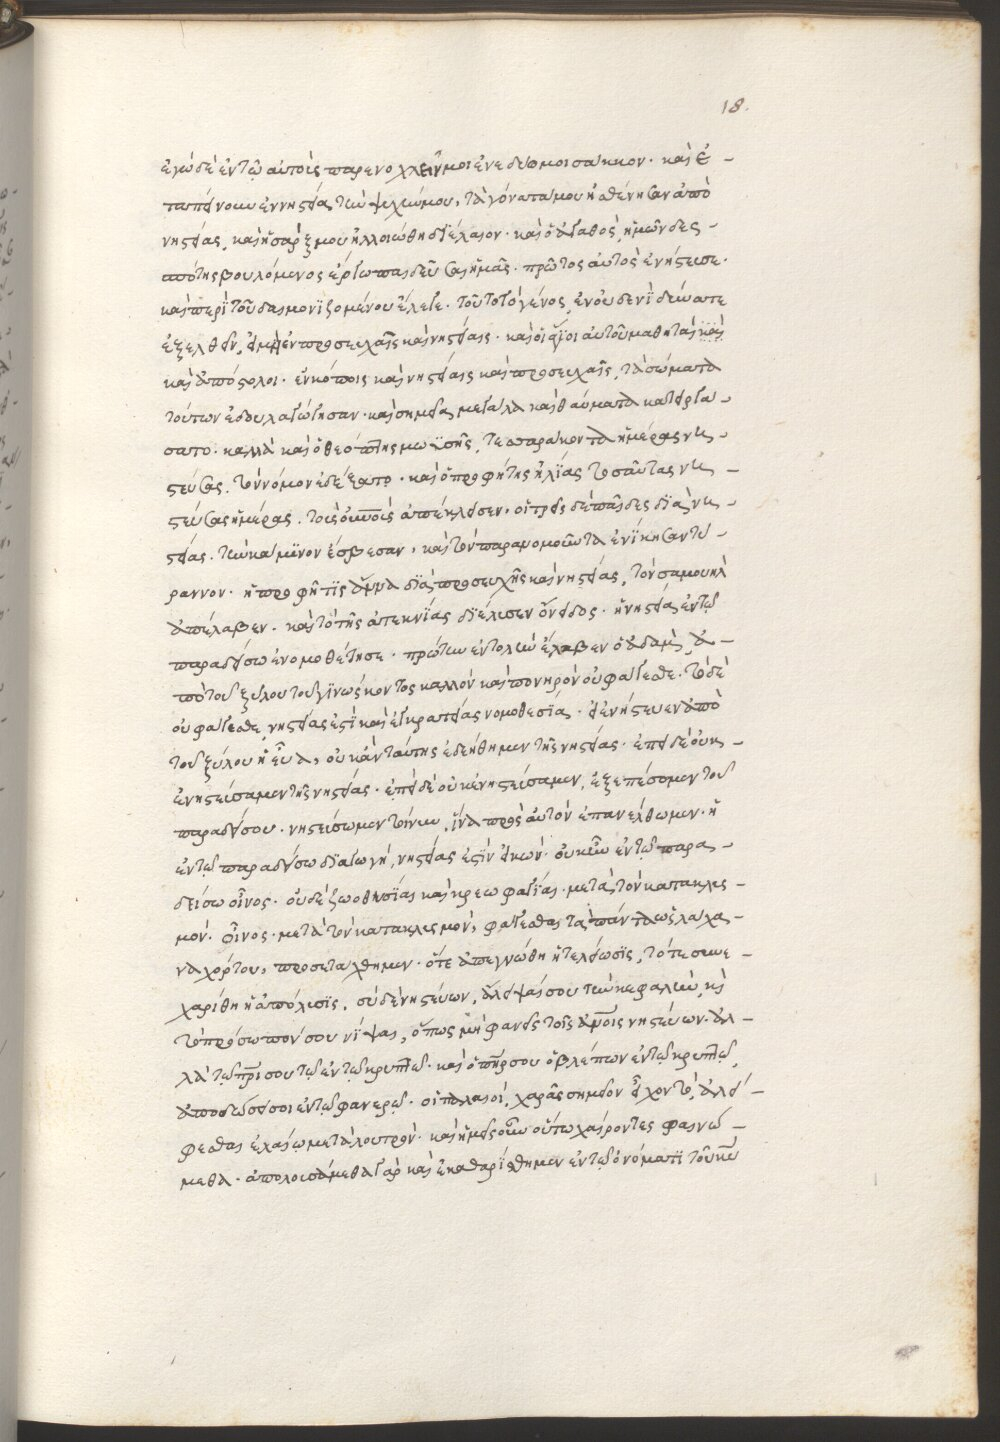 18.
ἐγὼ δὲ ἐν τῷ αὐτοὺς παρενοχλεῖν μοι ἐνεδυόμοι σάκκον. καὶ ἐ-
ταπείνουν ἐν νηστεία τὴν ψυχήν μου, τὰ γόνατά μου ἠσθένησαν ἀπὸ
νηστείας, καὶ ἡ σάρξ μου ἠλλοιώθη δι' ἔλαιον. καὶ ὁ ἀγαθὸς ἡμῶν δεσ-
πότης βουλόμενος ἔργω παιδεῦσαι ἡμᾶς. πρῶτος αὐτὸς ἐνήστευσε.
καὶ περὶ τοῦ δαιμονϊζομένου ἔλεγε. τοῦτο τὸ γένος ἐν οὐδενὶ δύναται
ἐξελθεῖν, εἰ μὴ ἐν προσευχαῖς καὶ νηστείαις. καὶ οἱ ἅγιοι αὐτοῦ μαθηταὶ καὶ
καὶ ἀπόστολοι. ἐν κόποις καὶ νηστείαις καὶ προσευχαῖς, τὰ σώματα
τούτων ἐδουλαγώγησαν. καὶ σημεῖα μεγάλα καὶ θαύματα κατειργά-
σαντο. καλλὰ καὶ ὁ θεόπτης μωϋσῆς, τεσσαράκοντα ἡμέρας νη-
στεύσας. τὸν νόμον ἐδέξατο. καὶ ὁ προφήτης ἠλίας τοσαύτας νη-
στεύσας ἡμέρας. τοὺς οὐνοὺς ἀπέκλεισεν. οἱ τρεῖς δὲ παῖδες διὰ νη-
στείας. τὴν κάμϊνον ἔσβεσαν, καὶ τὸν παρανομοῦντα ἐνίκησαν τύ-
ραννον. ἡ προφῆτϊς ἄννα διὰ προσευχῆς καὶ νηστείας, τὸν σαμουὴλ
ἀπέλαβεν. καὶ τὸ τῆς ἀτεκνίας διέλυσεν ὄνειδος. ἡ νηστεία ἐν τῷ
παραδείσω ἐνομοθέτησε. πρώτην ἐντολὴν ἔλαβεν ὁ ἀδάμ, ἀ-
πὸ τοῦ ξύλου τοῦ γϊνώσκοντος καλλὸν καὶ πονηρὸν οὐ φάγεσθε. τὸ δὲ
οὐ φάγεσθε, νηστείας ἐστὶ καὶ ἐγκρατείας νομοθεσία. εἰ ἐνήστευεν ἀπὸ
τοῦ ξύλου ἡ εὖα, οὐκ ἂν ταύτης ἐδεήθημεν τῆς νηστείας. ἐπεὶ δὲ οὐκ-
ἐνηστεύσαμεν τῆς νηστείας. ἐπεὶ δὲ οὐκ ἐνηστεύσαμεν, ἐξεπέσομεν τοῦ
παραδείσου. νηστεύσωμεν τοίνυν, ἵνα πρὸς αὐτὸν ἐπανέλθωμεν. ἡ
ἐν τῷ παραδείσω διαγωγὴ, νηστείας ἐστὶν εἰκών. οὐκ ἦν ἐν τῷ παρα-
δείσω οἶνος. οὐδὲ ζωοθυσίας καὶ κρεωφαγίας. μετὰ τὸν κατακλυσ-
μόν. οἶνος. μετὰ τὸν κατακλυσμόν, φάγεσθαι τὰ πάντα ὡς λάχα-
να χόρτου, προσετάχθημεν. ὅτε ἀπεγνώθη ἡ τελείωσϊς, τότε συνε-
χωρίθη ἡ ἀπόλαυσϊς. σὺ δὲ νηστεύων, ἄλειψαί σου τὴν κεφαλὴν, καὶ
τὸ πρόσωπόν σου νίψαι, ὅπως μὴ φανεῖς τοῖς ἀνοις νηστεύων. ἀλ-
λὰ τῷ πρί σου τῷ ἐν τῷ κρυπτῷ. καὶ ὁ πήρ σου ὁ βλέπων ἐν τῷ κρυπτῷ,
ἀποδώσει σοι ἐν τῷ φανερῷ. οἱ παλαιοὶ, χαρᾶς σημεῖον εἶχον τὸ ἀλεί-
φεσθαι ἐλαίω μετὰ λουτρόν. καὶ ἡμεῖς οὖν οὕτω χαίροντες φαινώ-
μεθα. ἀπολουσάμεθα γὰρ καὶ ἐκαθαρίσθημεν ἐν τῷ ὀνόματϊ τοῦ κυ